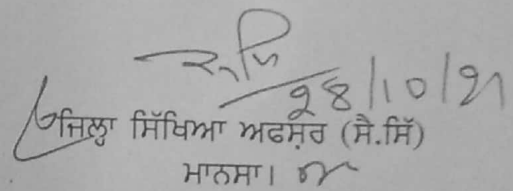 28/10/21
ਜਿਲ੍ਹਾ ਸਿੱਖਿਆ ਅਫਸਰ (ਸੈ.ਸਿੱ)
ਮਾਨਸਾ।